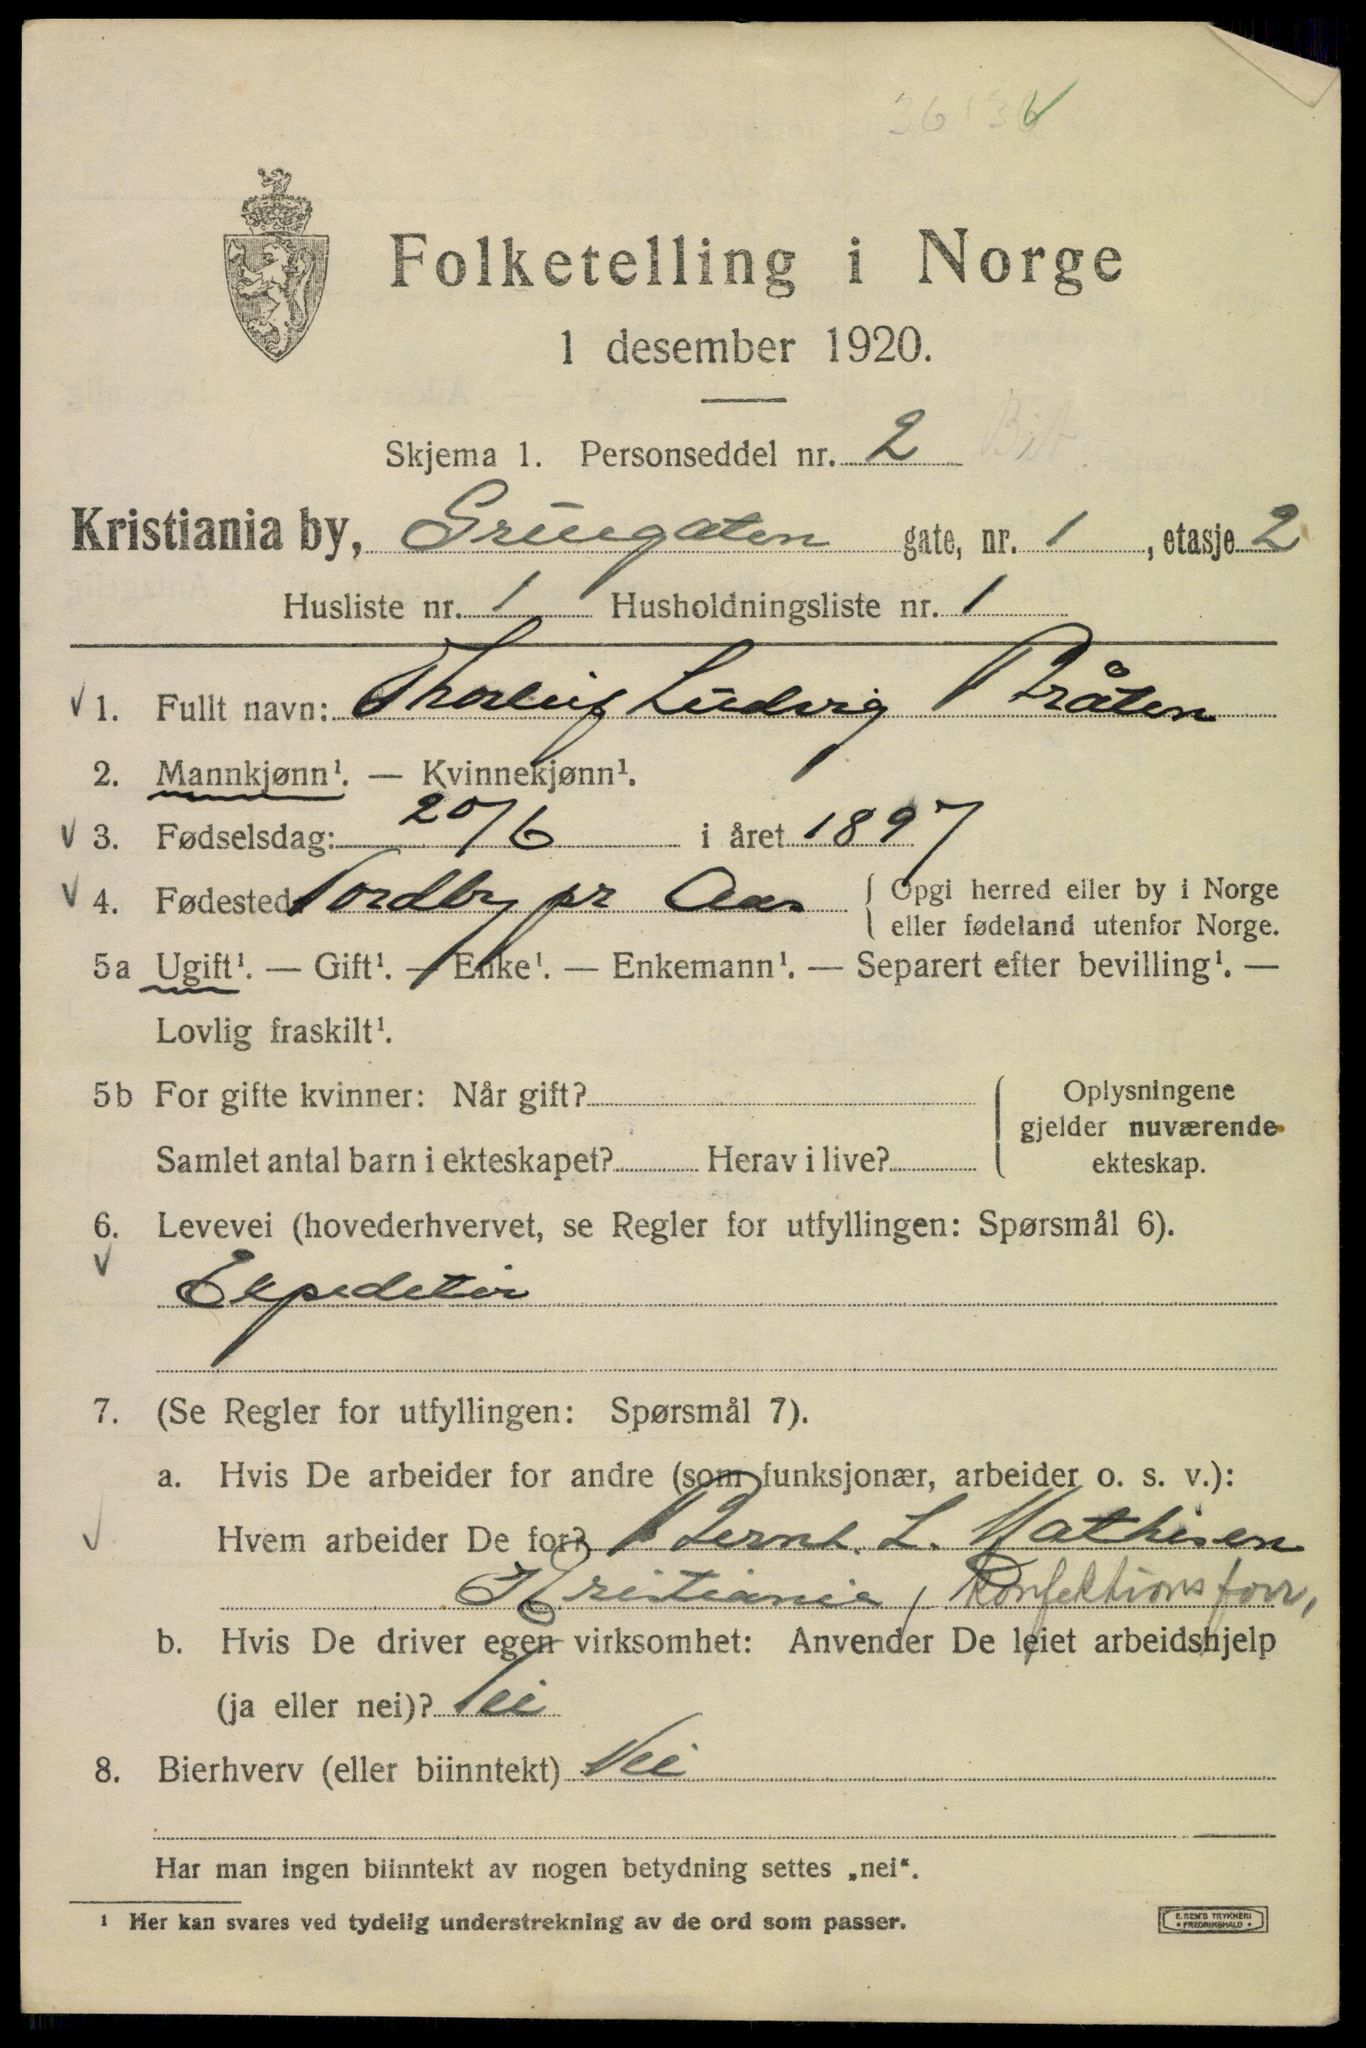 36136
Folketelling i Norge
1 desember 1920.
Skjema 1. Personseddel nr. 2
Kristiania by, Grüegaten gate, nr. 1, etasje 2
Husliste nr. 1 Husholdningsliste nr. 1
1. Fullt navn: Thorleif Ludvig Bråten
2. Mannkjønn¹. — Kvinnekjønn¹.
3. Fødselsdag: 20/6 i året 1897
4. Fødested Nordby pr Aas { Opgi herred eller by i Norge
eller fødeland utenfor Norge.
5a Ugift¹. — Gift¹. — Enke¹. — Enkemann¹. — Separert efter bevilling¹. —
Lovlig fraskilt¹.
5b For gifte kvinner: Når gift?
Samlet antal barn i ekteskapet? Herav i live?
Oplysningene
gjelder nuværende
ekteskap.
6. Levevei (hovederhvervet, se Regler for utfyllingen: Spørsmål 6).
Expeditør
7. (Se Regler for utfyllingen: Spørsmål 7).
a. Hvis De arbeider for andre (som funksjonær, arbeider o. s. v.):
Hvem arbeider De for? Bernh. L. Mathisen
Kristiania, Konfektionsforr,
b. Hvis De driver egen virksomhet: Anvender De leiet arbeidshjelp
(ja eller nei)? Nei
8. Bierhverv (eller biinntekt) Nei
Har man ingen biinntekt av nogen betydning settes „nei“.
¹ Her kan svares ved tydelig understrekning av de ord som passer.
E. SEM'S TRYKKERI
• FREDRIKSHALD •